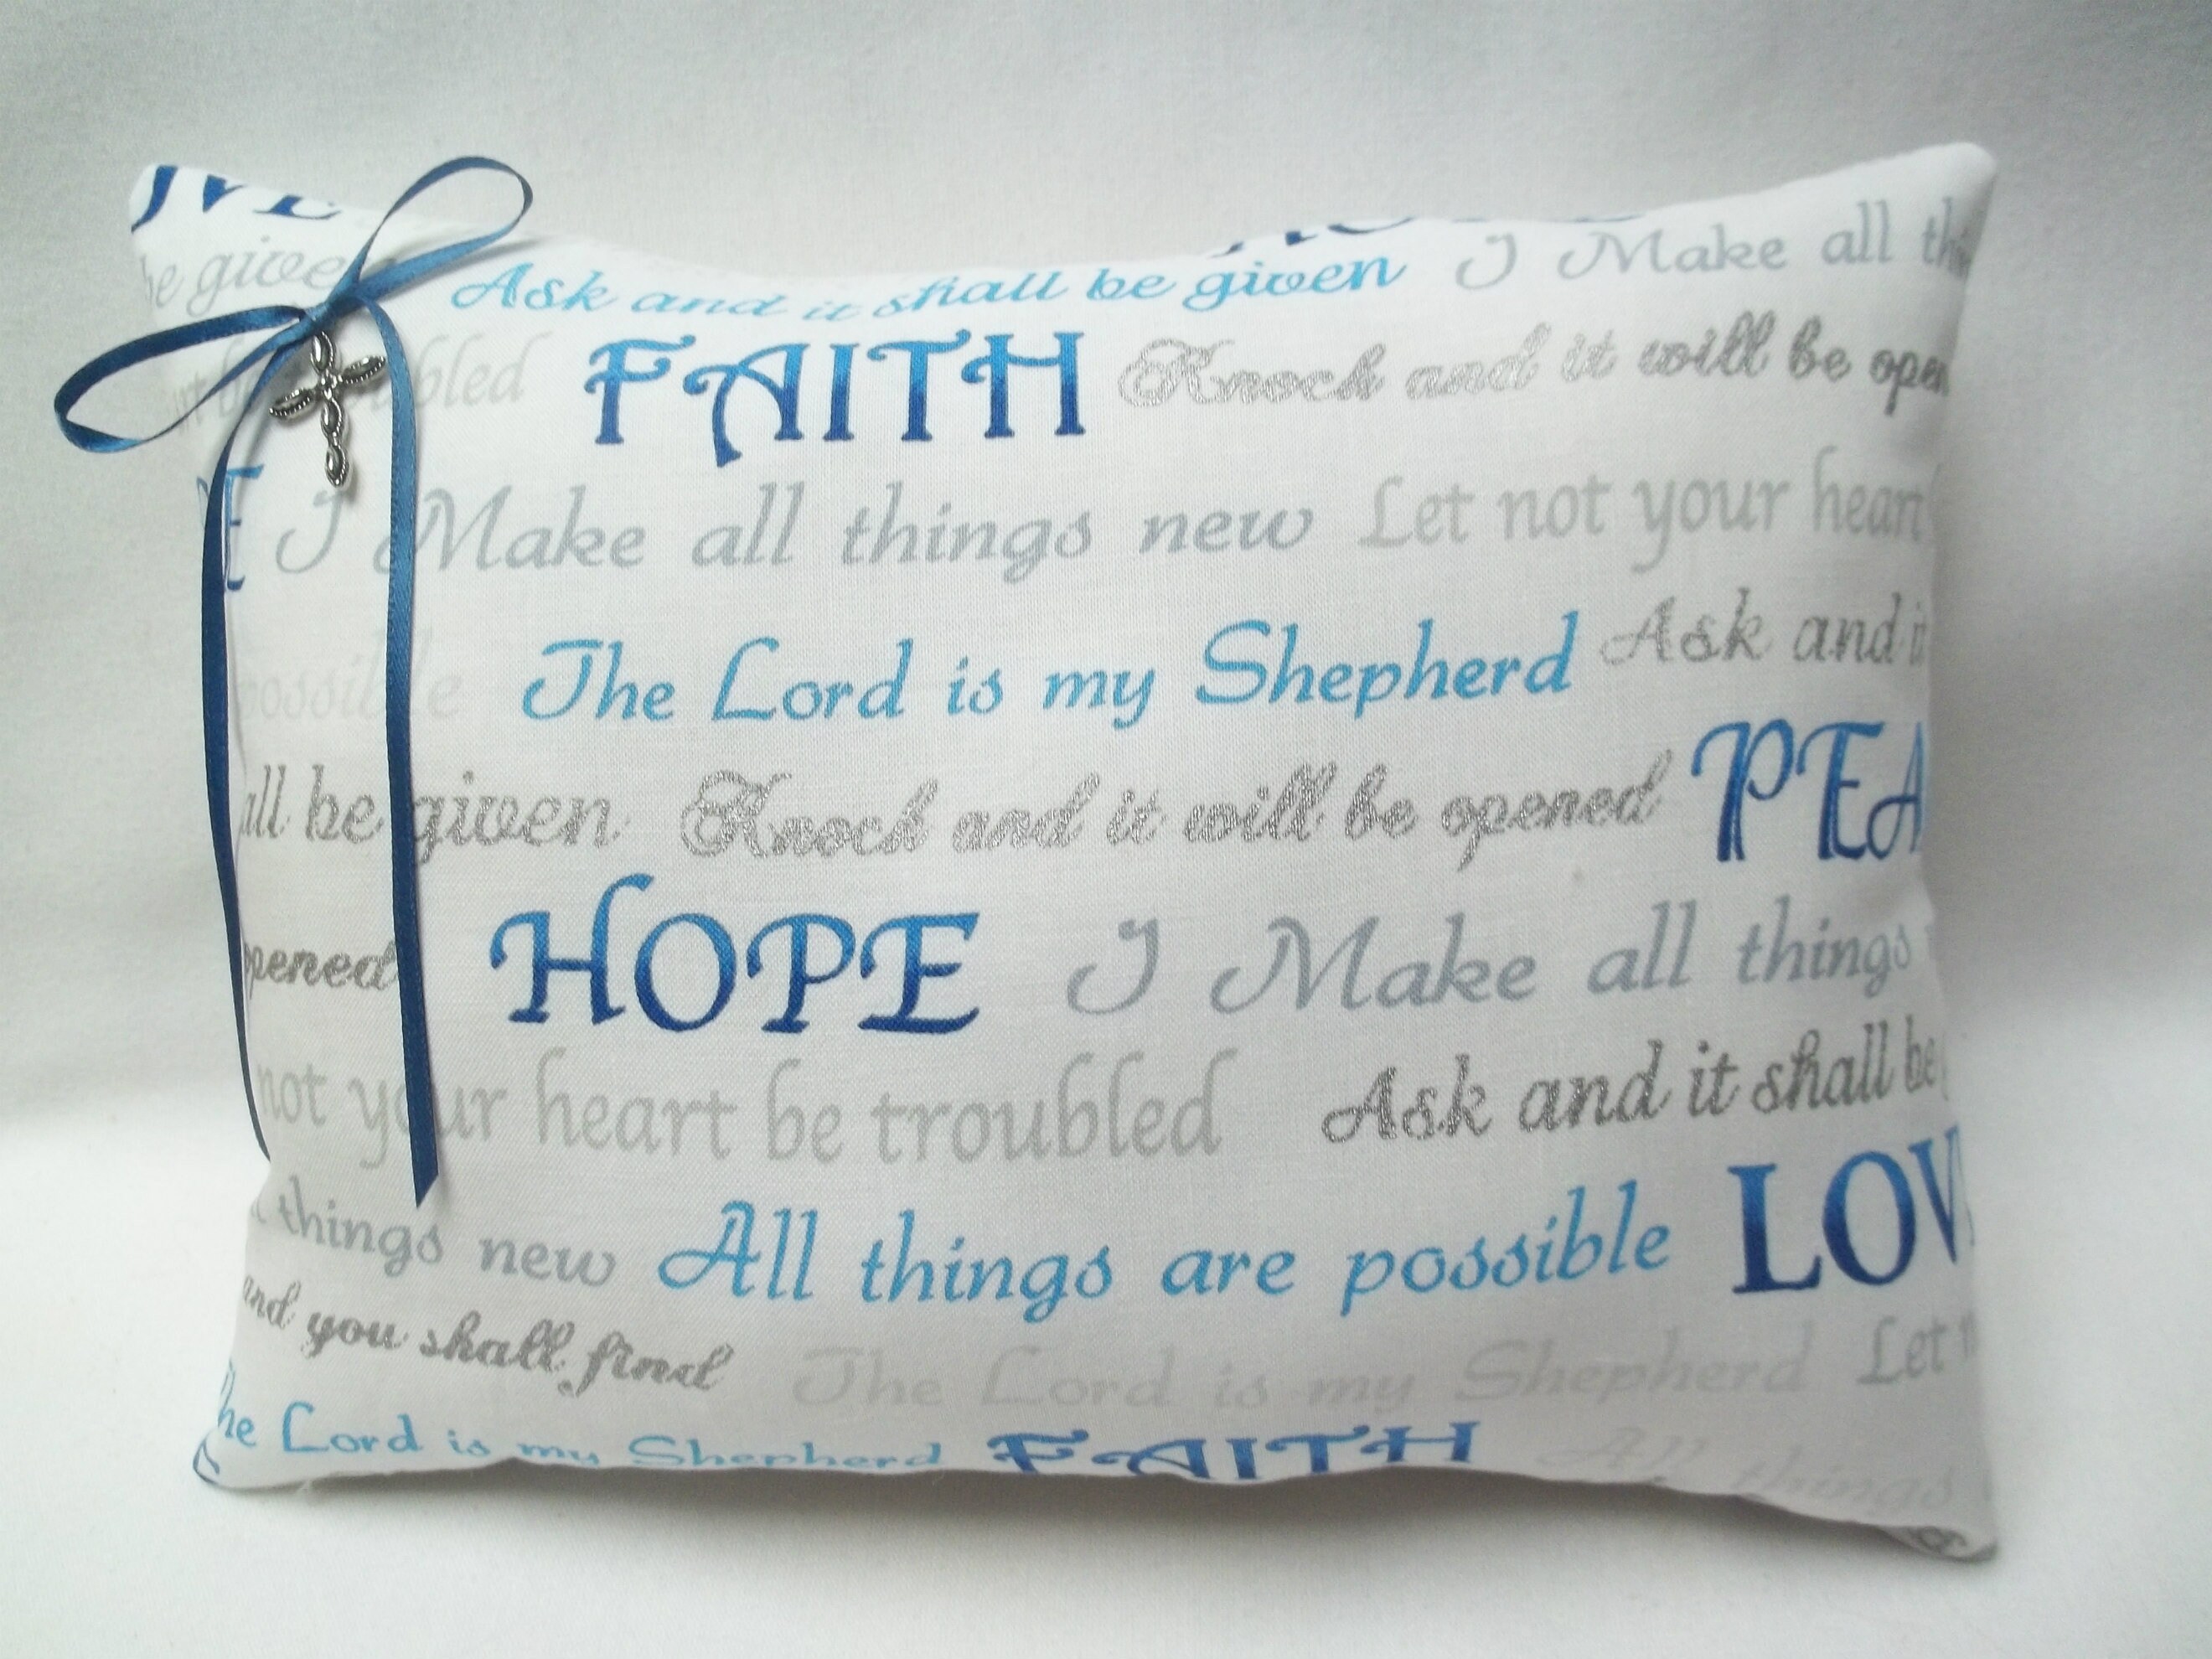 be give Ask and it shall be given I Make all
bled FAITH Knock and it will be open
I Make all things new Let not your heart
possible The Lord is my Shepherd Ask and it
all be given Knock and it will be opened PEA
pened HOPE I Make all things
not your heart be troubled Ask and it shall be
things new All things are possible LOV
and you shall find The Lord is my Shepherd Let
he Lord is my Shepherd FAITH All things